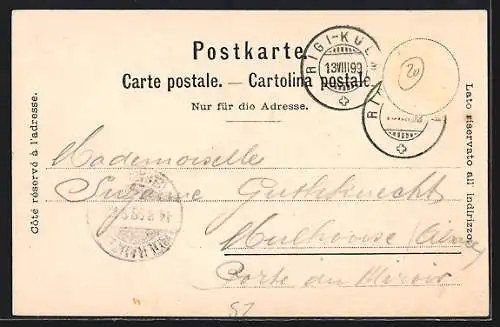 Postkarte
Carte postale. — Cartolina postale.
Nur für die Adresse.
Côté réservé à l'adresse.
Lato riservato all' indirizzo.
RIGI-KULM
13VIII99
20
RIG
Mademoiselle
Suzanne Guthknecht
Mulhouse (Alsace)
Porte du Miroir
57